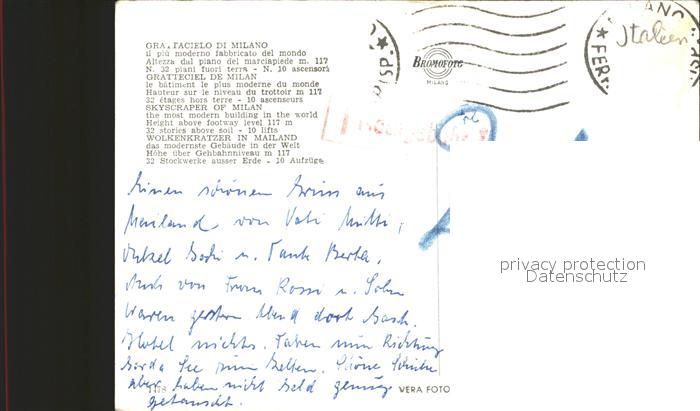 GRATTACIELO DI MILANO
il più moderno fabbricato del mondo
Altezza dal piano del marciapiede m. 117
N. 32 piani fuori terra - N. 10 ascensori
GRATTECIEL DE MILAN
le bâtiment le plus moderne du monde
Hauteur sur le niveau du trottoir m 117
32 étages hors terre - 10 ascenseurs
SKYSCRAPER OF MILAN
the most modern building in the world
Height above footway level 117 m
32 stories above soil - 10 lifts
WOLKENKRATZER IN MAILAND
das modernste Gebäude in der Welt
Höhe über Gehbahnniveau m 117
32 Stockwerke ausser Erde - 10 Aufzüge
BROMOFOTO
MILANO
DISP.
MILANO
FERR
Italien
Nachgebühr
Einen schönen Gruss aus
Mailand von Vati Mutti,
Onkel u. Tante Berta.
Auch von Frau Rossi u. Sohn
Waren gestern Abend dort
Hotel nichts. Fahren nun Richtung
Garda See zum Zelten. Schöne Schuhe
aber haben nicht Geld genug
getauscht.
1178
VERA FOTO
privacy protection
Datenschutz